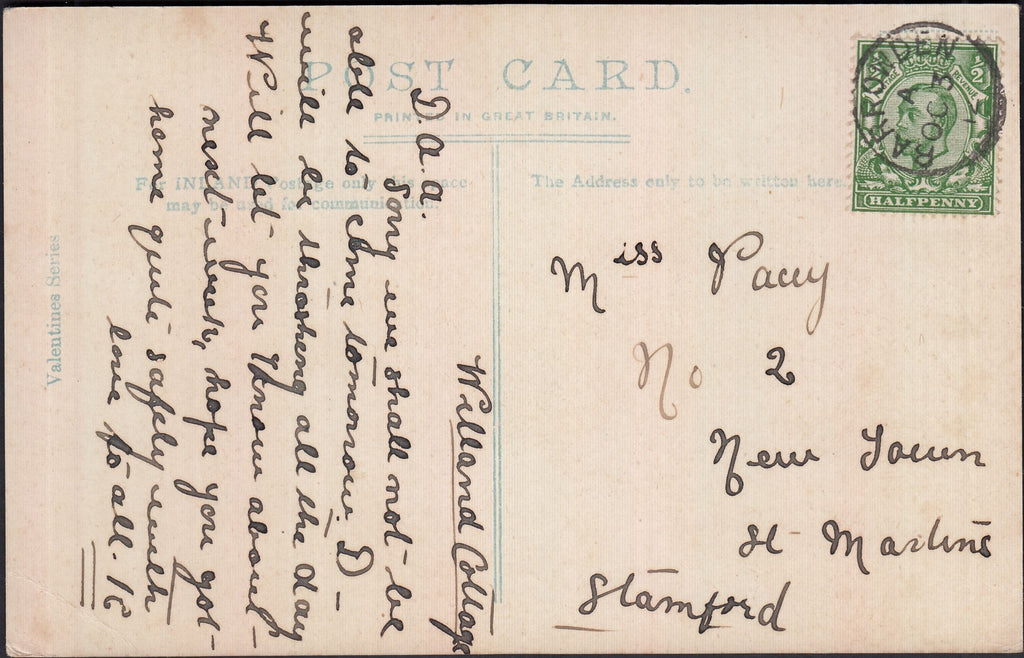 POST CARD.
PRINTED IN GREAT BRITAIN.
For INLAND Postage only this space
may be used for communication.
The Address only to be written here.
Valentines Series
BARROWDEN
A
OC 3
HALFPENNY
Miss Pacey
No 2
New Town
St Martins
Stamford
Willand Cottage
D.A.A.
Sorry we shall not be
able to come tomorrow D-
will be thrasheng all the day
Will let you know about
next week, hope you got
home quite safely with
love to all. K